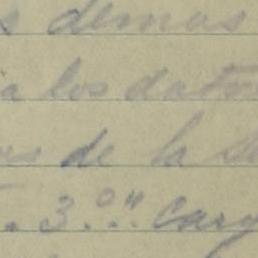 s demas
a los dato
os de la
3.° cary